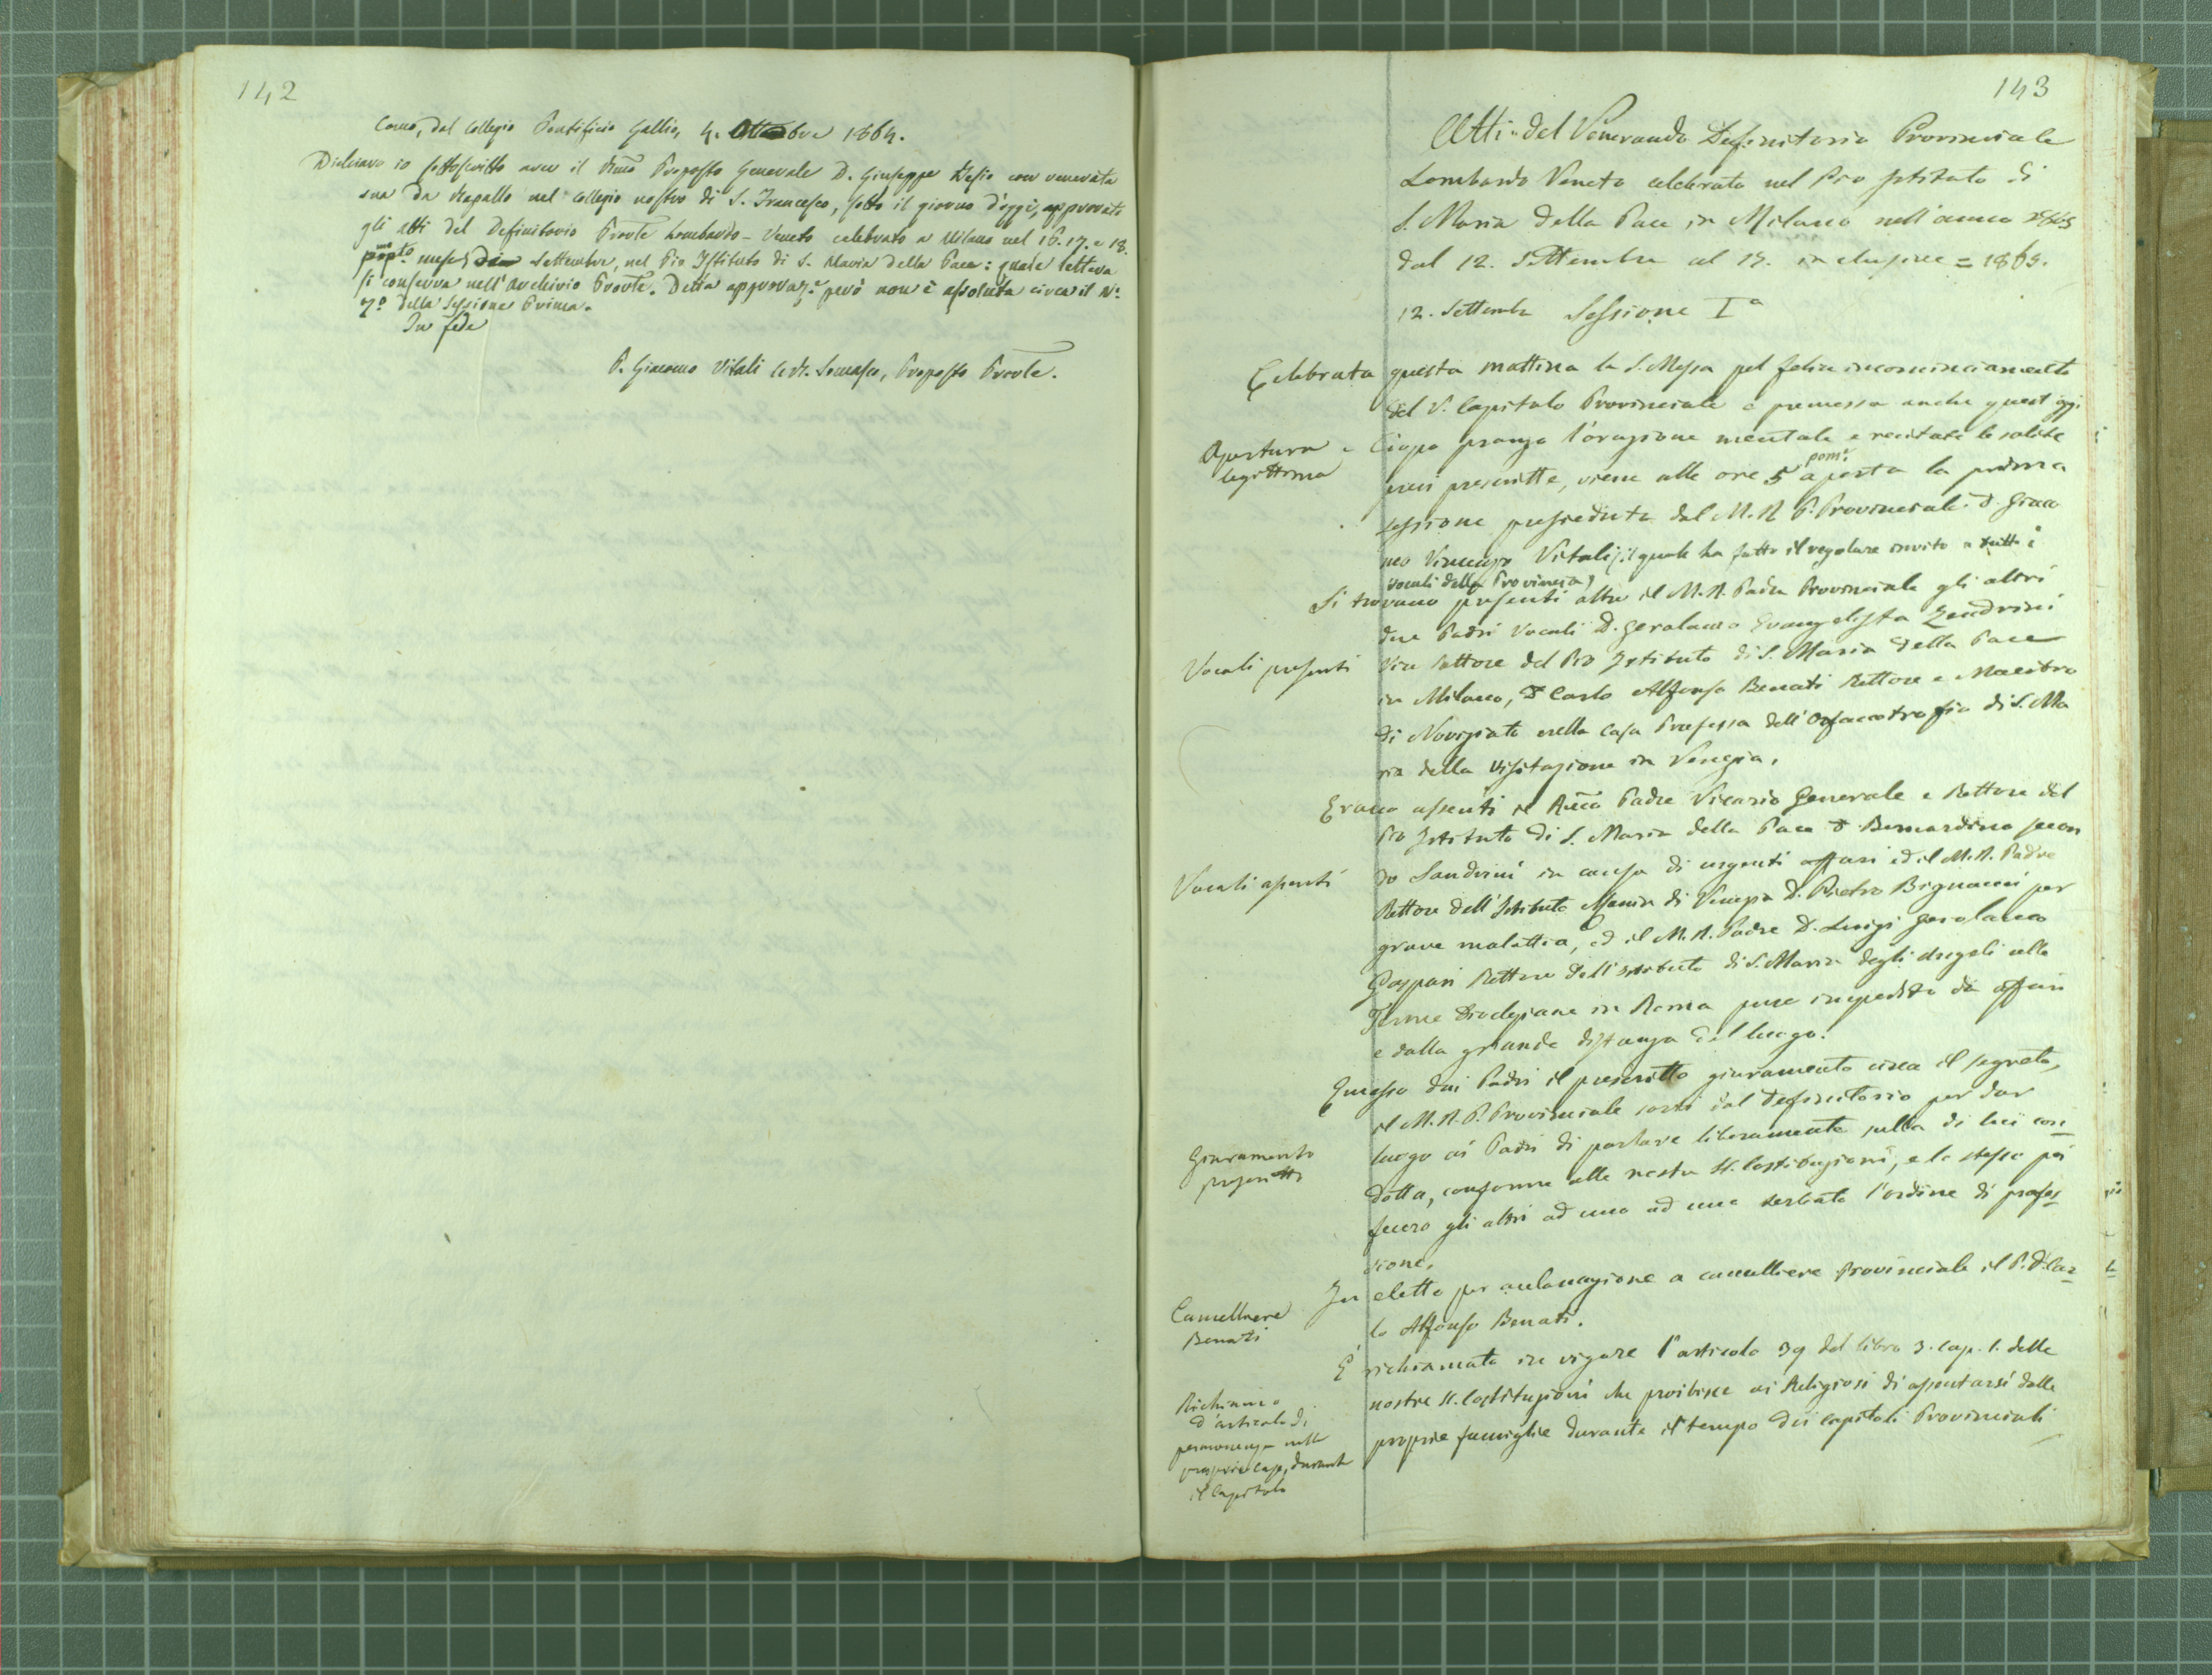 142
Como, dal Collegio Pontificio Gallio, 4. Ottobre 1864.
Dichiaro io sottoscritto aver il Rmo Preposto Generale D. Giuseppe Besio con venerata
sua da Rapallo nel Collegio nostro di S. Francesco, sotto il giorno d'oggi, approvato
gli atti del Definitorio Provle Lombardo-Veneto celebrato a Milano nel 16. 17. e 18.
mese Settembre, nel Pio Istituto di S. Maria della Pace: quale lettera
si conserva nell'Archivio Provle. Detta approvaze però non è assoluta circa il No
7o della Sessione Prima.
In fede
P. Giacomo Vitali C.R. Somasco, Preposto Provle.
143
Atti del Venerando Definitorio Provinciale
Lombardo Veneto celebrato nel Pio Istituto di
S. Maria della Pace in Milano nell'anno 1865
dal 12. Settembre al 17. inclusive = 1865.
12. Settembre Sessione Ia
Celebrata questa mattina la S. Messa pel felice incominciamento
del V. Capitolo Provinciale e premessa anche quest'oggi
Apertura e
legittima
dopo pranzo l'orazione mentale e recitate le solite
preci prescritte, viene alle ore 5 pom.e aperta la prima
sessione presieduta dal M. R. P. Provinciale D. Giaco
mo Vincenzo Vitali (il quale ha fatto il regolare invito a tutti i
vocali della Provincia)
Si trovano presenti oltre il M. R. Padre Provinciale gli altri
due Padri Vocali D. Gerolamo Evangelista Zendrini
Vocali presenti
Vice Rettore del Pio Istituto di S. Maria della Pace
in Milano, D Carlo Alfonso Benati Rettore e Maestro
di Noviziato nella Casa Professa dell'Orfanotrofio di S. Ma
ria della Visitazione in Venezia.
Erano assenti il Rmo Padre Vicario Generale e Rettore del
Pio Istituto di S. Maria della Pace D. Bernardino Secon
Vocali assenti
do Sandrini in causa di urgenti affari ed il M. R. Padre
Rettore dell'Istituto Manin di Venezia D. Pietro Bignami per
grave malattia, ed il M. R. Padre D. Luigi Gerolamo
Gaspari Rettore dell'Istituto di S. Maria degli Angeli alle
Terme Diocleziane in Roma pure impedito da affari
e dalla grande distanza del luogo.
Emesso dai Padri il prescritto giuramento circa il segreto,
il M. R. P. Provinciale sortì dal Definitorio per dar
Giuramento
prescritto
luogo ai Padri di parlare liberamente sulla di lui con=
dotta, conforme alle nostre SS. Costituzioni, e lo stesso poi
fecero gli altri ad uno ad uno serbato l'ordine di profes=
sione.
Cancelliere
Benati
Fu eletto per acclamazione a cancelliere Provinciale il P. D. Car=
lo Alfonso Benati.
È richiamato in vigore l'articolo 39 del libro 3. cap. 1. delle
Richiamo
d'articolo di
permanenza nelle
proprie case, durante
il Capitolo
nostre SS. Costituzioni che proibisce ai Religiosi di assentarsi dalle
proprie famiglie durante il tempo dei Capitoli Provinciali